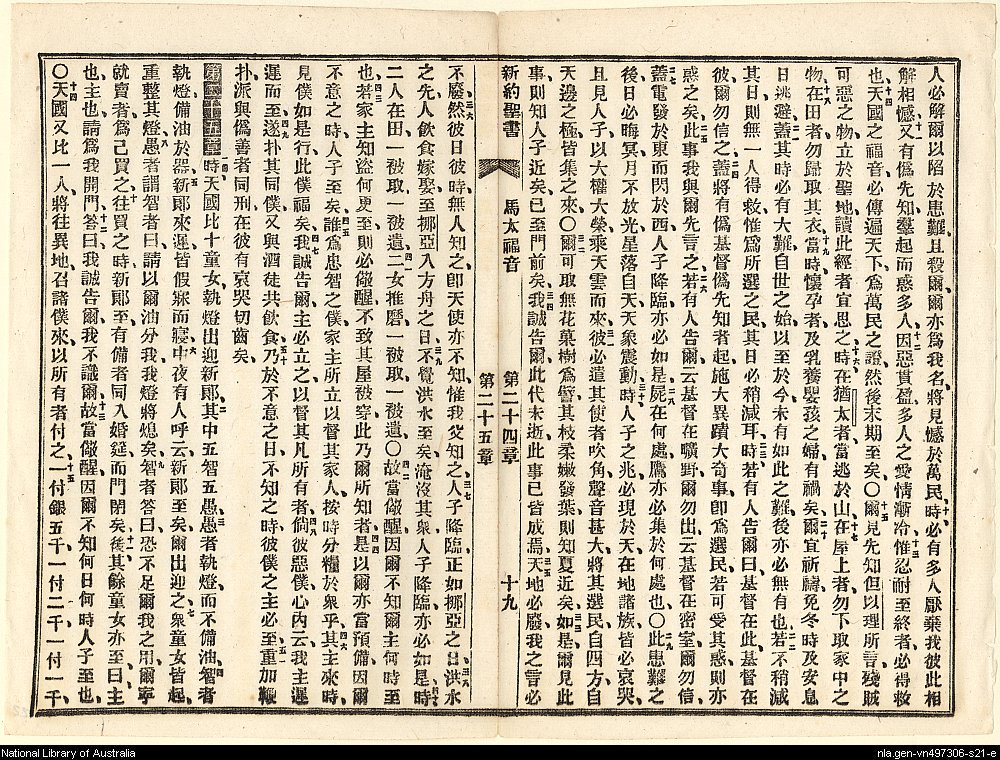 人必解爾以陷於患難且殺爾爾亦為我名將見憾於萬民時必有多人厭棄我彼此相
解相憾又有偽先知羣起而惑多人因惡貫盈多人之愛情漸冷惟忍耐至終者必得救
也天國之福音必傳遍天下為萬民之證然後末期至矣〇爾見先知但以理所言殘賊
可惡之物立於聖地讀此經者宜思之時在猶太者當逃於山在屋上者勿下取家中之
物在田者勿歸取其衣當時懷孕者及乳養嬰孩之婦有禍矣爾宜祈禱免冬時及安息
日逃避蓋其時必有大難自世之始以至於今未有如此之難後亦必無有也若不稍減
其日則無一人得救惟為所選之民其日必稍減耳時若有人告爾曰基督在此基督在
彼爾勿信之蓋將有偽基督偽先知者起施大異蹟大奇事卽為選民若可受其惑則亦
惑之矣此事我與爾先言之若有人告爾云基督在曠野爾勿出云基督在密室爾勿信
蓋電發於東而閃於西人子降臨亦必如是屍在何處鷹亦必集於何處也〇此患難之
後日必晦冥月不放光星落自天天象震動時人子之兆必現於天在地諸族皆必哀哭
且見人子以大權大榮乘天雲而來彼必遣其使者吹角聲音甚大將其選民自四方自
天邊之極皆集之來〇爾可取無花菓樹為譬其枝柔嫩發葉則知夏近矣如是爾見此
事則知人子近矣已至門前矣我誠告爾此代未逝此事已皆成焉天地必廢我之言必
新約聖書 馬太福音 第二十四章 第二十五章 十九
不廢然彼日彼時無人知之卽天使亦不知惟我父知之人子降臨正如挪亞之日洪水
之先人飲食嫁娶至挪亞入方舟之日不覺洪水至矣淹沒其衆人子降臨亦必如是時
二人在田一被取一被遺二女推磨一被取一被遺〇故當儆醒因爾不知爾主何時至
也若家主知盜何更至則必儆醒不致其屋被穿此乃爾所知者是以爾亦當預備因爾
不意之時人子至矣誰為忠智之僕家主所立以督其家人按時分糧於衆乎其主來時
見僕如是行此僕福矣我誠告爾主必立之以督其凡所有者倘彼惡僕心內云我主遲
遲而至遂扑其同僕又與酒徒共飲食乃於不意之日不知之時彼僕之主必至重加鞭
扑派與偽善者同刑在彼有哀哭切齒矣
第二十五章時天國比十童女執燈出迎新郞其中五智五愚愚者執燈而不備油智者
執燈備油於器新郞來遲皆假寐而寢中夜有人呼云新郞至矣爾出迎之衆童女皆起
重整其燈愚者謂智者曰請以爾油分我我燈將熄矣智者答曰恐不足爾我之用爾寧
就賣者為己買之往買之時新郞至有備者同入婚筵而門閉矣後其餘童女亦至曰主
也主也請為我開門答曰我誠告爾我不識爾故當儆醒因爾不知何日何時人子至也
〇天國又比一人將往異地召諸僕來以所有者付之一付銀五千一付二千一付一千
National Library of Australia
nla.gen-vn497306-s21-e